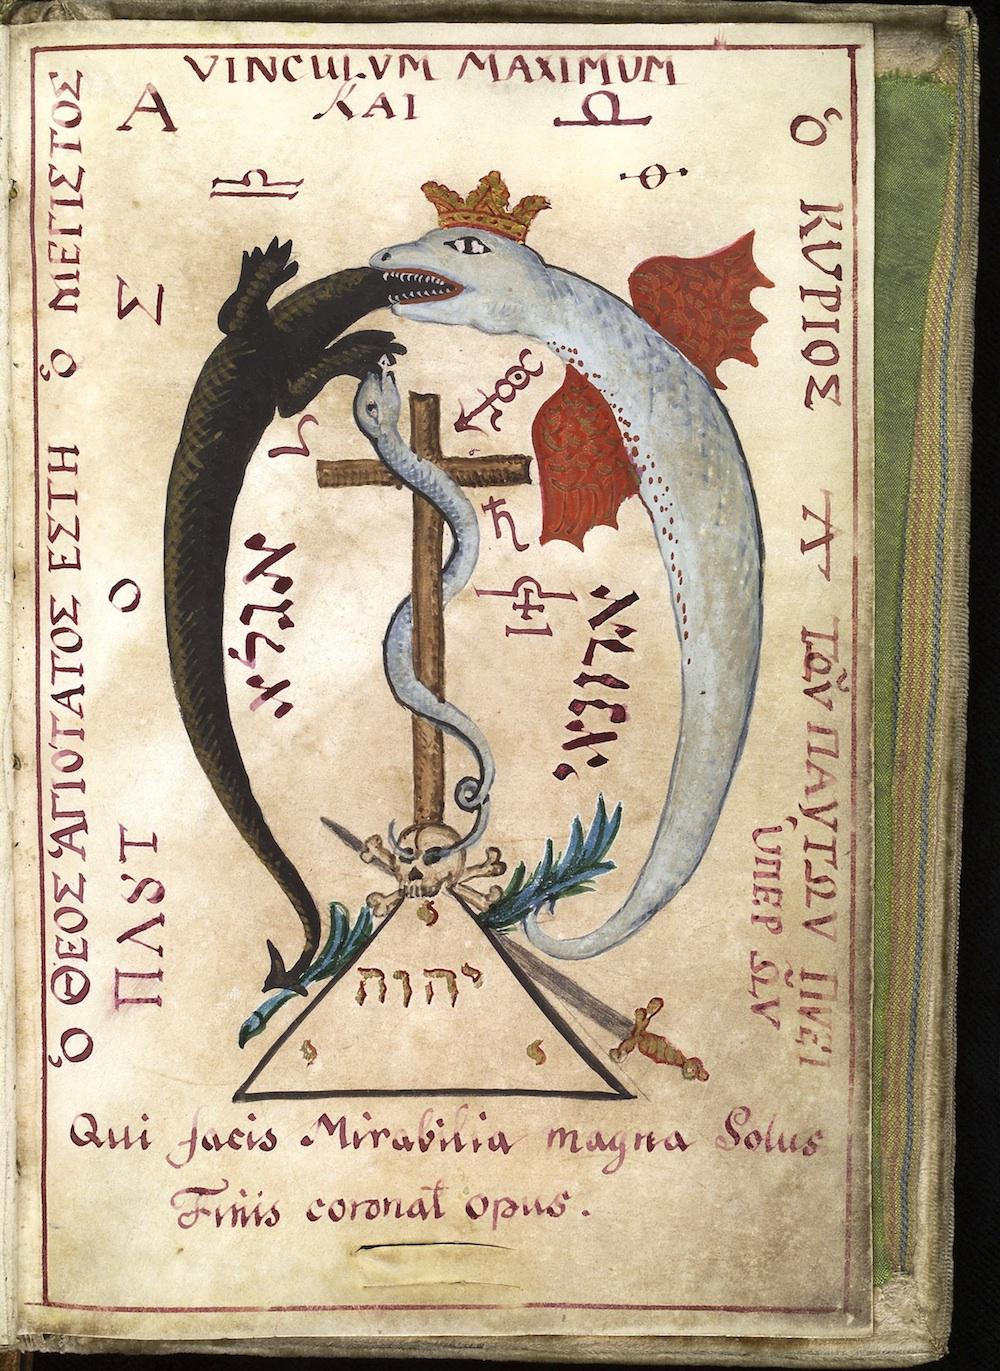 VINCULVM MAXIMUM
Α ΚΑΙ Ω
Ὁ ΘΕΟΣ ἉΓΙΟΤΑΤΟΣ ΕΣΤΗ Ὁ ΜΕΓΙΣΤΟΣ
Ὁ ΚΥΡΙΟΣ
ΤΩΝ ΠΑΥΤΩΝ
ὙΠΕΡ ΩΝ
Σ
Ο
אגלא
יהוה
Qui facis Mirabilia magna Solus
Finis coronat opus.